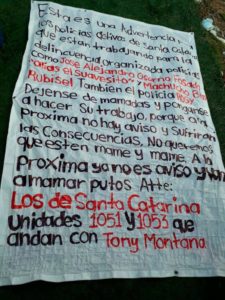 Esta es una Advertencia
policias activos de santa Catari
que estan trabajando para la
delincuencia organizada policias
como Jose Alejandro
alias el suavesito
Rubisel Tambien el policia
Dejense de mamadas y ponganse
a hacer Su trabajo, porque a la
proxima no hay aviso y Sufriran
las Consecuencias. No queremos
que esten mame y mame. A la
Proxima ya no es aviso y van
a mamar putos Atte:
Los de Santa Catarina
Unidades 1051 y 1053 que
andan con Tony Montana